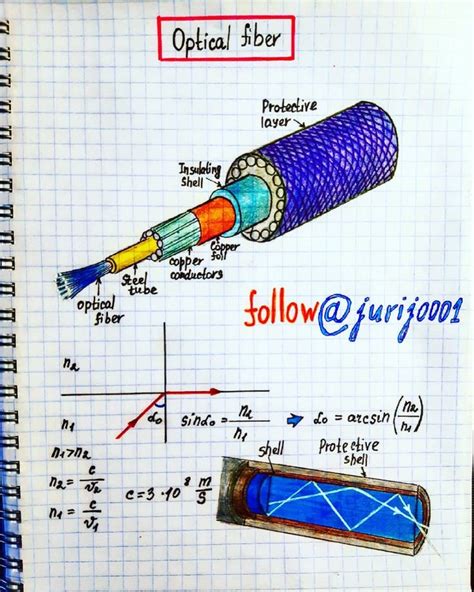 Optical fiber
Protective
layer
Insulating
shell
Copper
foil
copper
conductors
Steel
tube
optical
fiber
follow@jurijo001
n₂
n₁
α₀
sinα₀ = n₂/n₁ ➡ α₀ = arcsin(n₂/n₁)
n₁>n₂
n₂ = c/v₂
c = 3 · 10⁸ m/s
n₁ = c/v₁
shell
Protective
shell